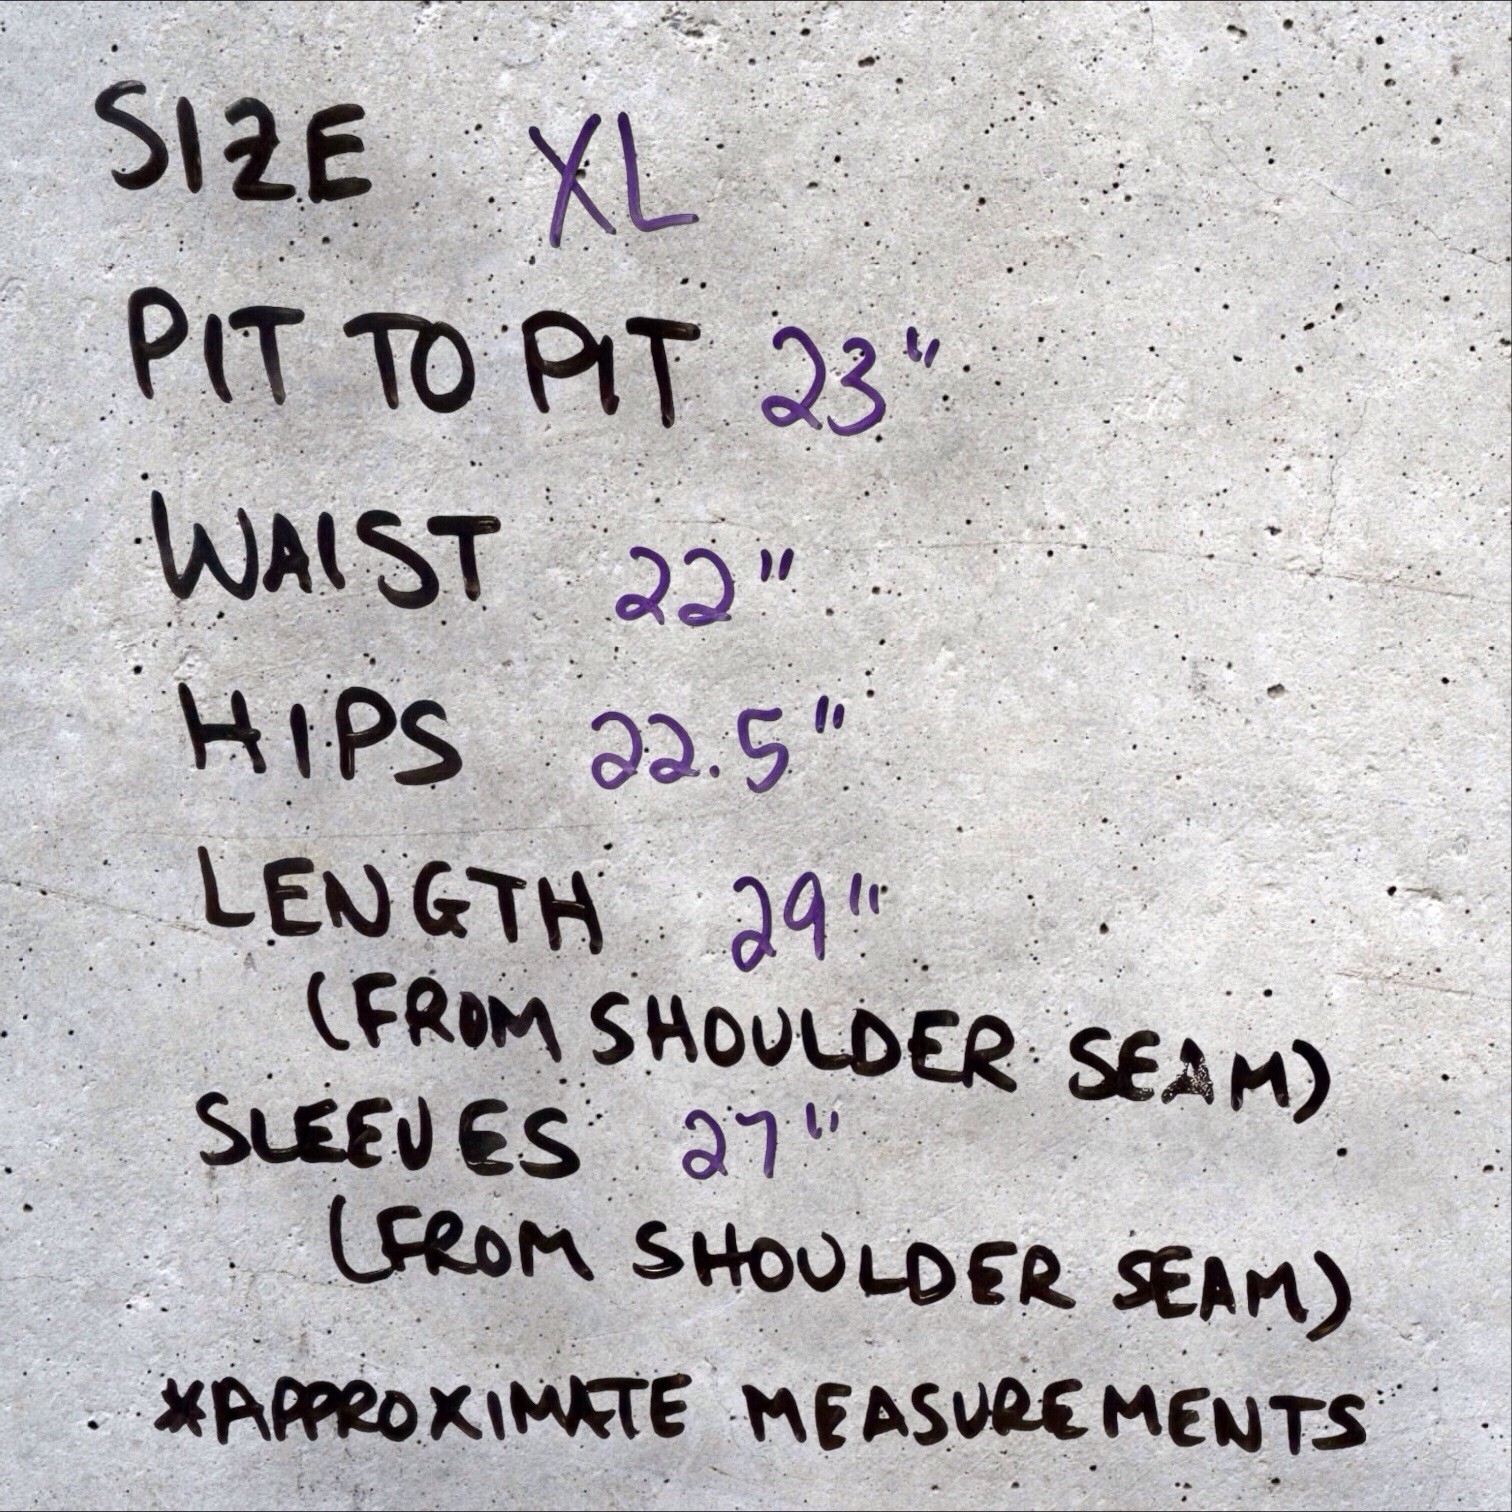 SIZE XL
PIT TO PIT 23"
WAIST 22"
HIPS 22.5"
LENGTH 29"
(FROM SHOULDER SEAM)
SLEEVES 27"
(FROM SHOULDER SEAM)
*APPROXIMATE MEASUREMENTS